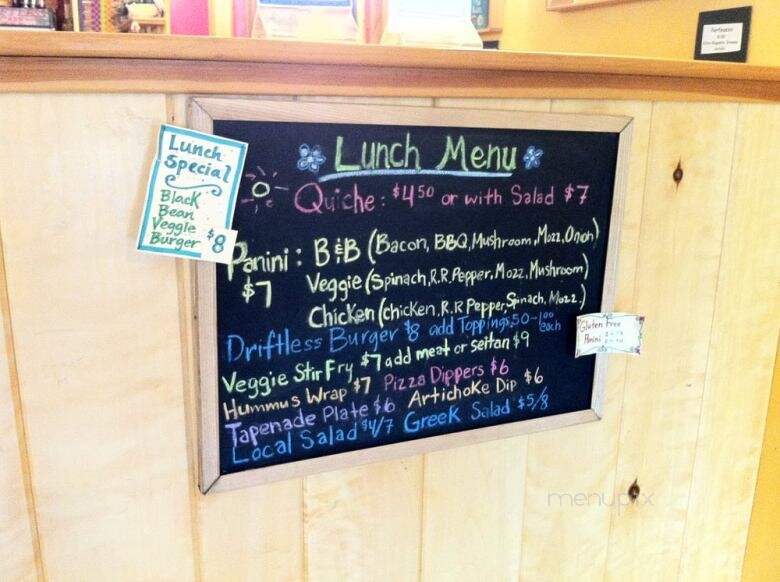 Lunch
Special
Black
Bean
Veggie
Burger $8
Lunch Menu
Quiche: $4.50 or with Salad $7
Panini: B&B (Bacon, BBQ, Mushroom, Mozz, Onion)
$7 Veggie (Spinach, R.R. Pepper, Mozz, Mushroom)
Chicken (chicken, R.R Pepper, Spinach, Mozz.)
Driftless Burger $8 add Toppings .50-1.00 each
Veggie Stir Fry $7 add meat or seitan $9
Hummus Wrap $7 Pizza Dippers $6
Tapenade Plate $6 Artichoke Dip $6
Local Salad $4/7 Greek Salad $5/8
Gluten free
Panini
menupix